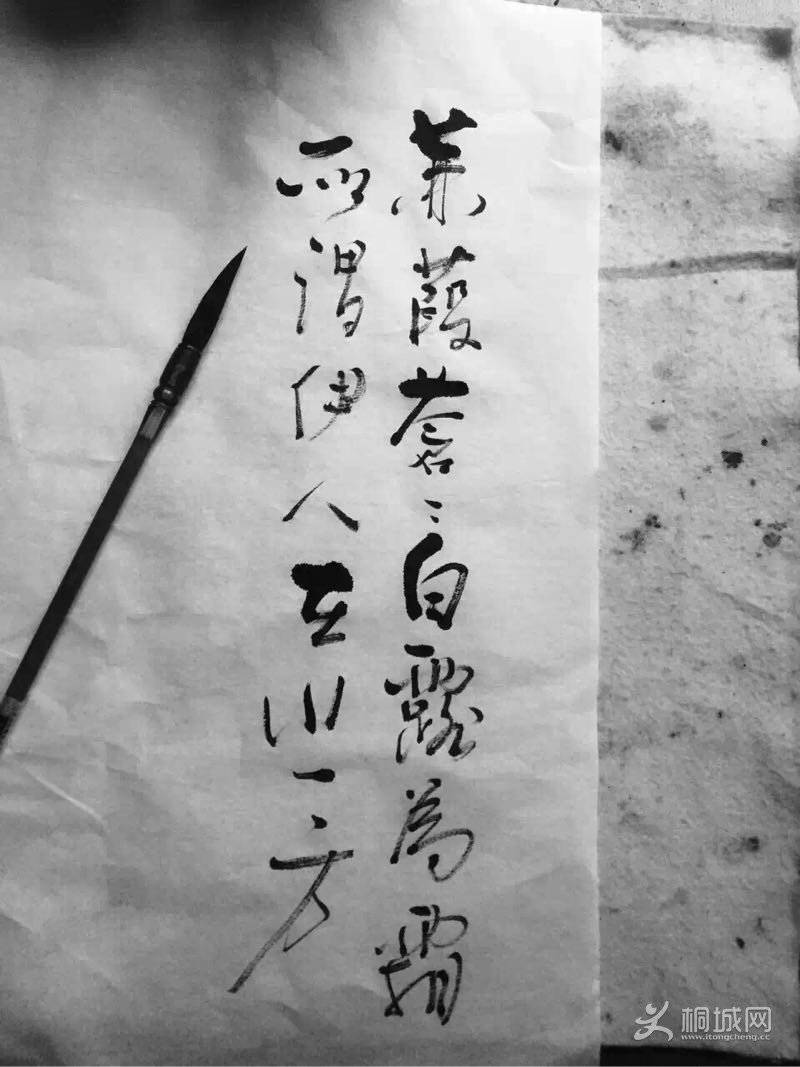 蒹葭蒼〻白露為霜
所謂伊人在水一方
桐城网
www.itongcheng.cc